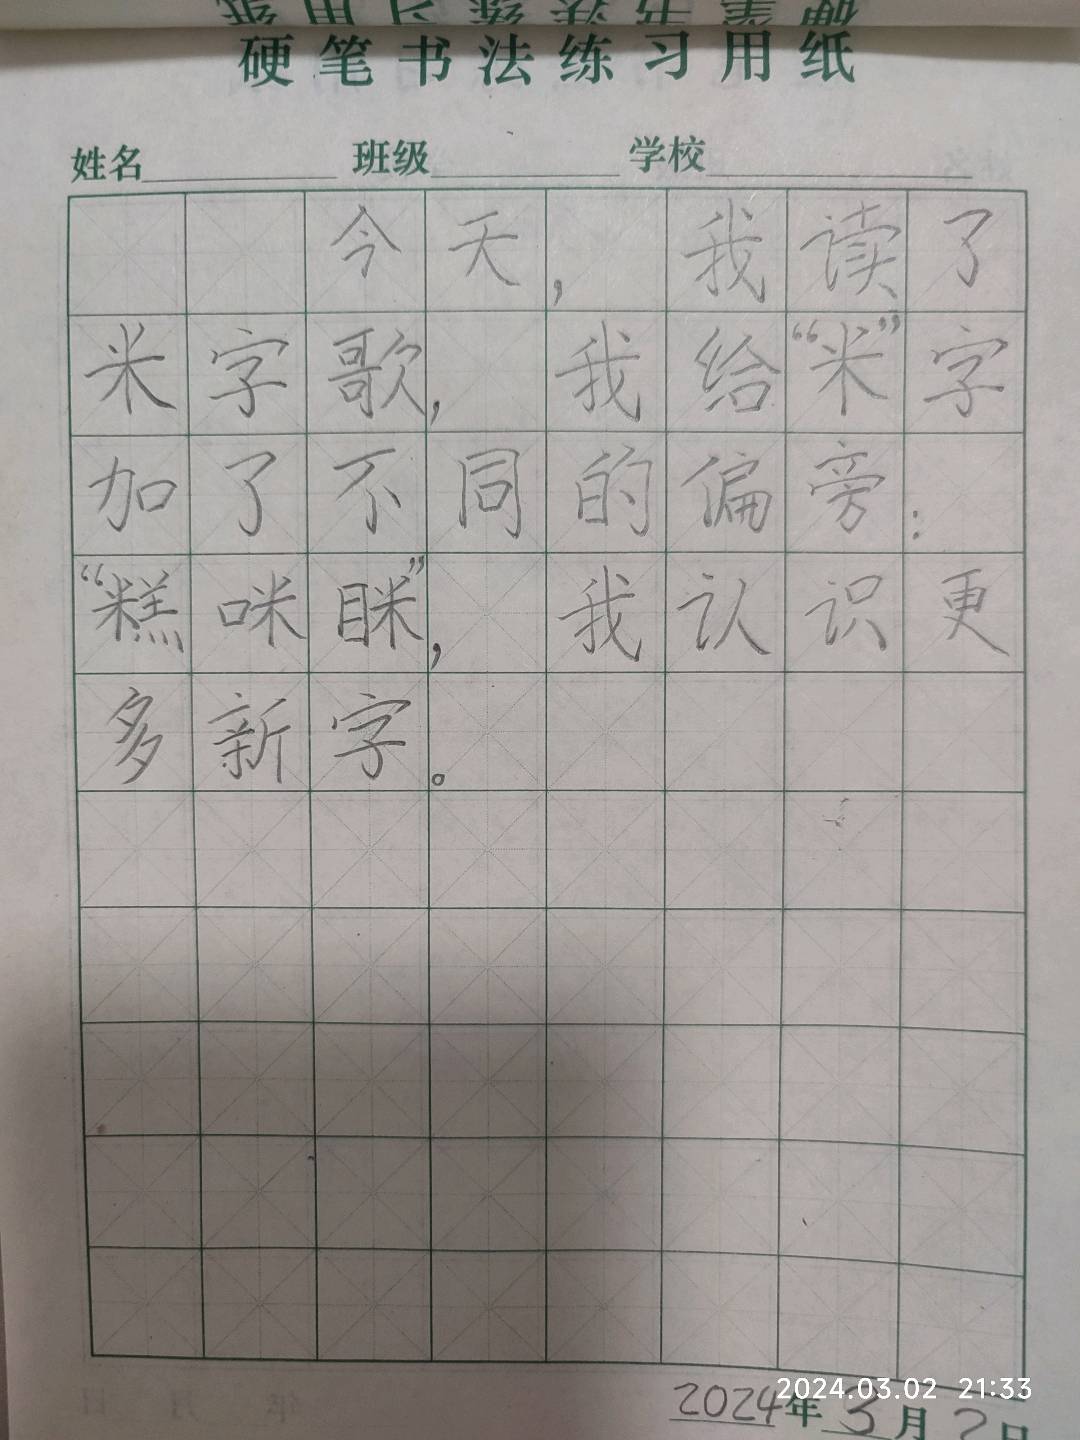 硬笔书法练习用纸
姓名 班级 学校
今天,我读了
米字歌,我给“米”字
加了不同的偏旁:
“糕咪眯”,我认识更
多新字。
2024年3月2日
2024.03.02 21:33